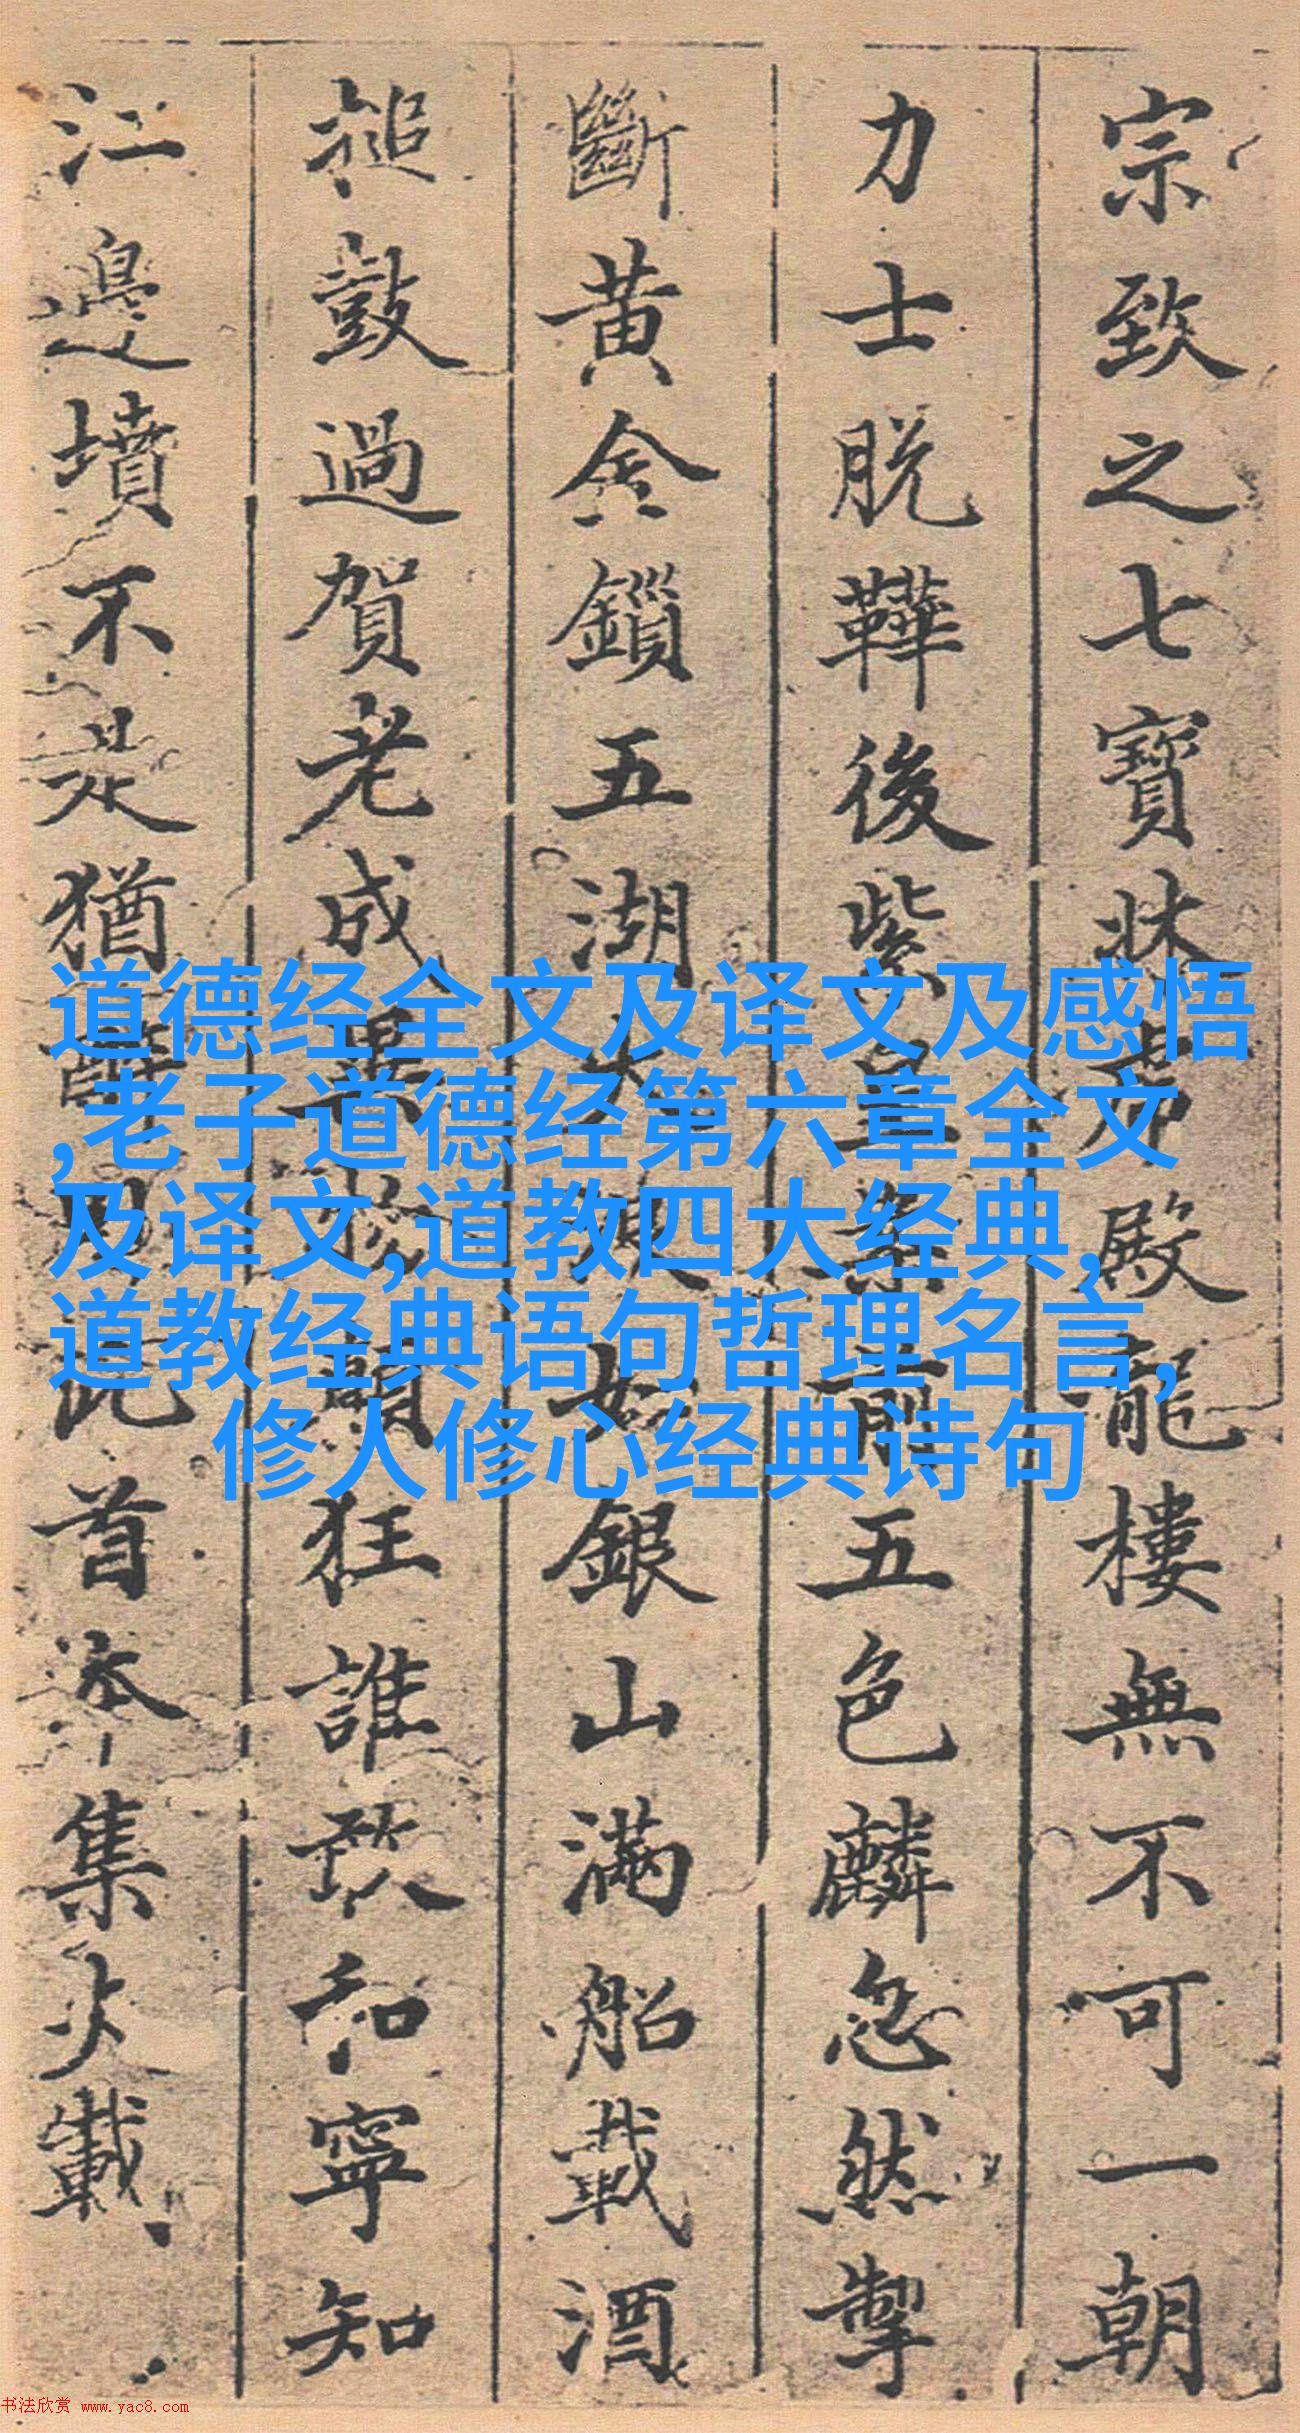 宗致之七寶牀殿龍樓無不可一朝
力士脱鞾後紫皇案前五色麟忽然掣
斷黄金鎖五湖大浪如銀山滿船載酒
槌鼓過賀老成異物顛狂誰敢和寧知
江邊墳不是猶醉卧此首本集載
道德经全文及译文及感悟
,老子道德经第六章全文
及译文,道教四大经典,
道教经典语句哲理名言,
修人修心经典诗句
书法欣赏 www.yac8.com